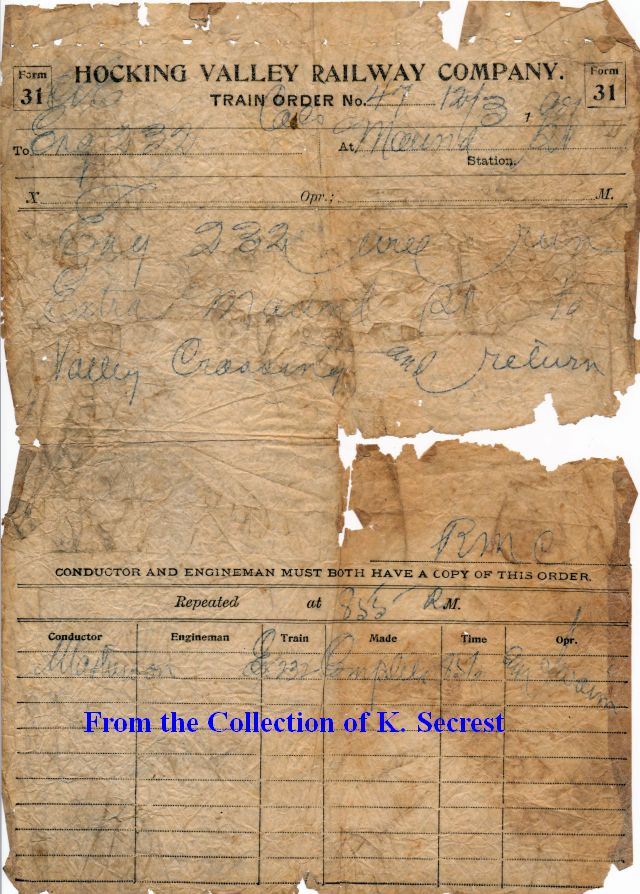 Form 31
HOCKING VALLEY RAILWAY COMPANY.
Form 31
TRAIN ORDER No. 47 12/3 1 09
To Eng 232 At Mound St
Station.
X Opr.; M.
Eng 232 will run
Extra Mound St to
Valley Crossing and return
RMC
CONDUCTOR AND ENGINEMAN MUST BOTH HAVE A COPY OF THIS ORDER.
Repeated at 855 M.
Conductor Engineman Train Made Time Opr.
Ex 232 Complete
From the Collection of K. Secrest